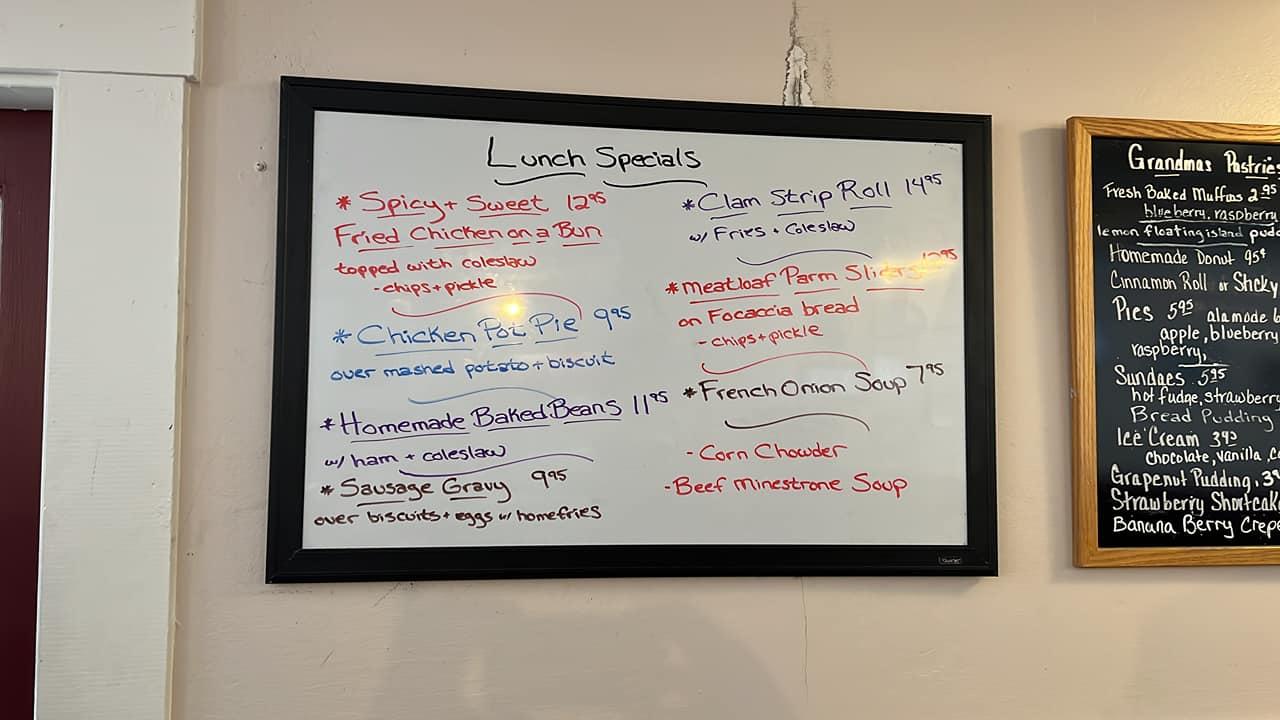 Lunch Specials
* Spicy + Sweet 12.95
Fried Chicken on a Bun
topped with coleslaw
- chips + pickle
* Chicken Pot Pie 9.95
over mashed potato + biscuit
* Homemade Baked Beans 11.95
w/ ham + coleslaw
* Sausage Gravy 9.95
over biscuits + eggs w/ homefries
* Clam Strip Roll 14.95
w/ Fries + Coleslaw
* Meatloaf Parm Sliders
on Focaccia bread
- chips + pickle
* French Onion Soup 7.95
- Corn Chowder
- Beef Minestrone Soup
Grandmas Pastries
Fresh Baked Muffins 2.95
blueberry, raspberry
lemon floating island
Homemade Donut 95¢
Cinnamon Roll or Sticky
Pies 5.95 alamode
apple, blueberry
raspberry,
Sundaes 5.95
hot fudge, strawberry
Bread Pudding
Ice Cream 3.95
chocolate, vanilla,
Grapenut Pudding
Strawberry Shortcake
Banana Berry Crepe